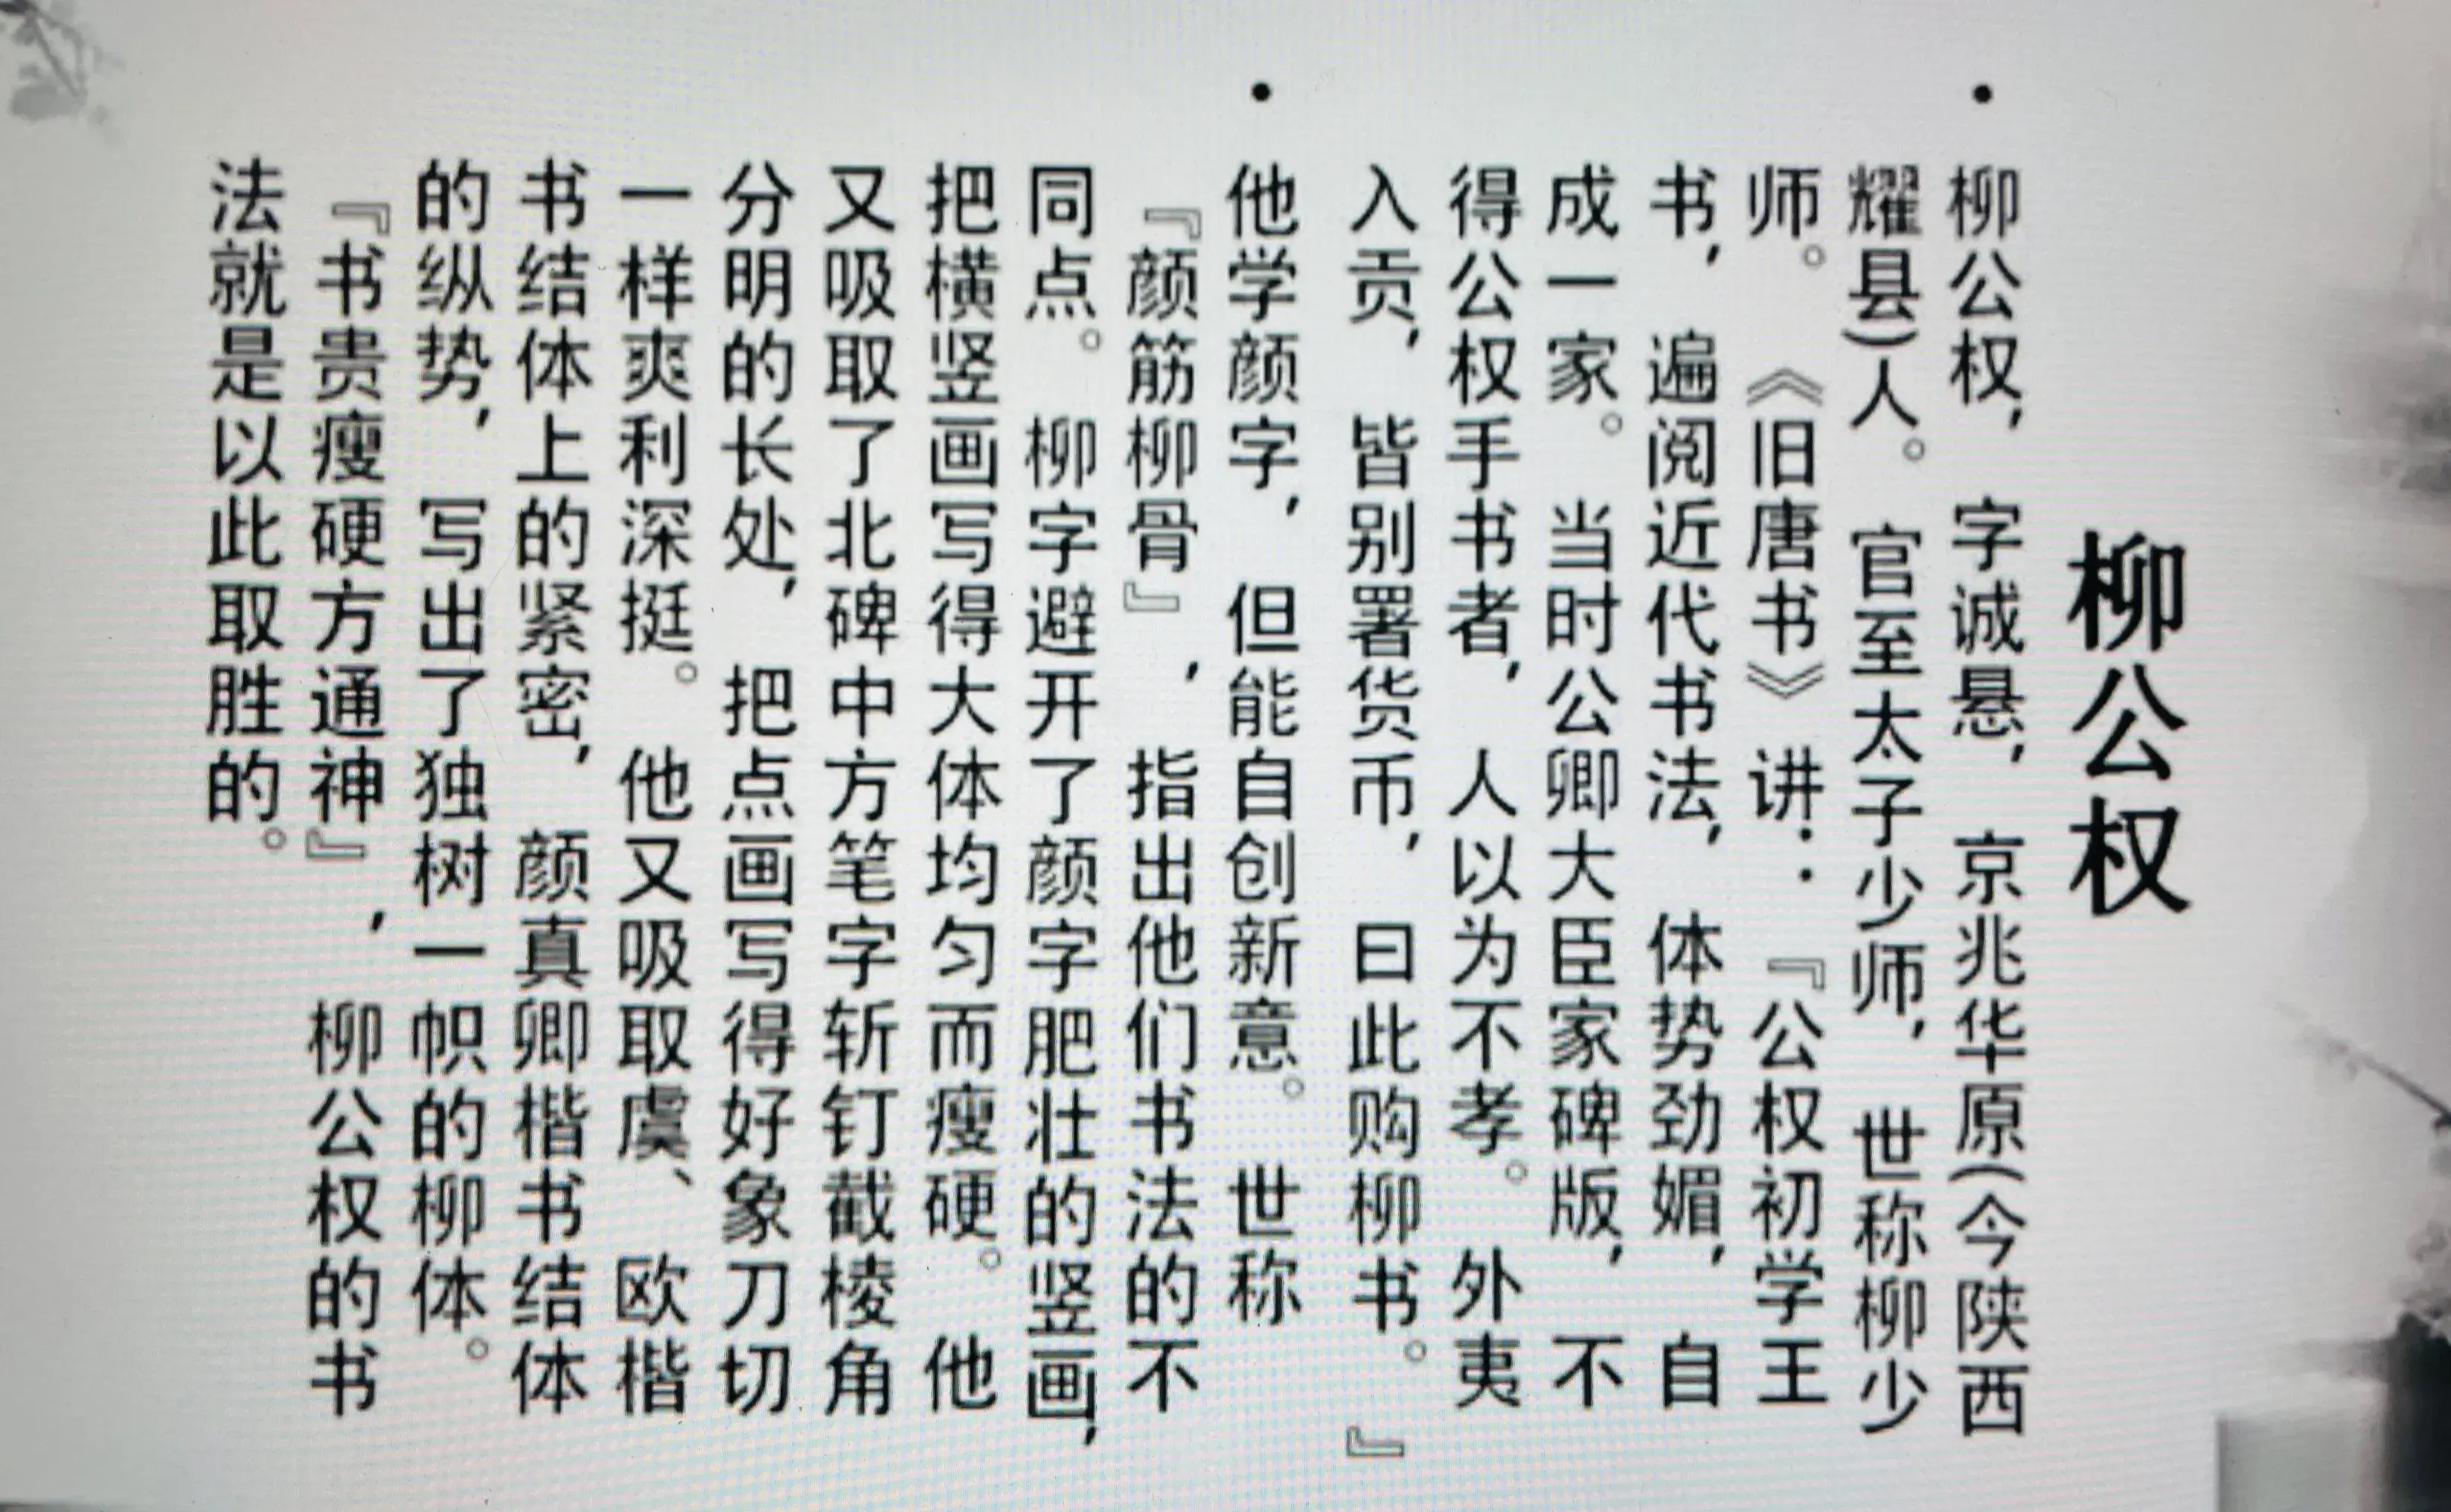 柳公权
• 柳公权，字诚悬，京兆华原(今陕西
耀县)人。官至太子少师，世称柳少
师。《旧唐书》讲：『公权初学王
书，遍阅近代书法，体势劲媚，自
成一家。当时公卿大臣家碑版，不
得公权手书者，人以为不孝。外夷
入贡，皆别署货币，曰此购柳书。』
• 他学颜字，但能自创新意。世称
『颜筋柳骨』，指出他们书法的不
同点。柳字避开了颜字肥壮的竖画，
把横竖画写得大体均匀而瘦硬。他
又吸取了北碑中方笔字斩钉截棱角
分明的长处，把点画写得好象刀切
一样爽利深挺。他又吸取虞、欧楷
书结体上的紧密，颜真卿楷书结体
的纵势，写出了独树一帜的柳体。
『书贵瘦硬方通神』，柳公权的书
法就是以此取胜的。